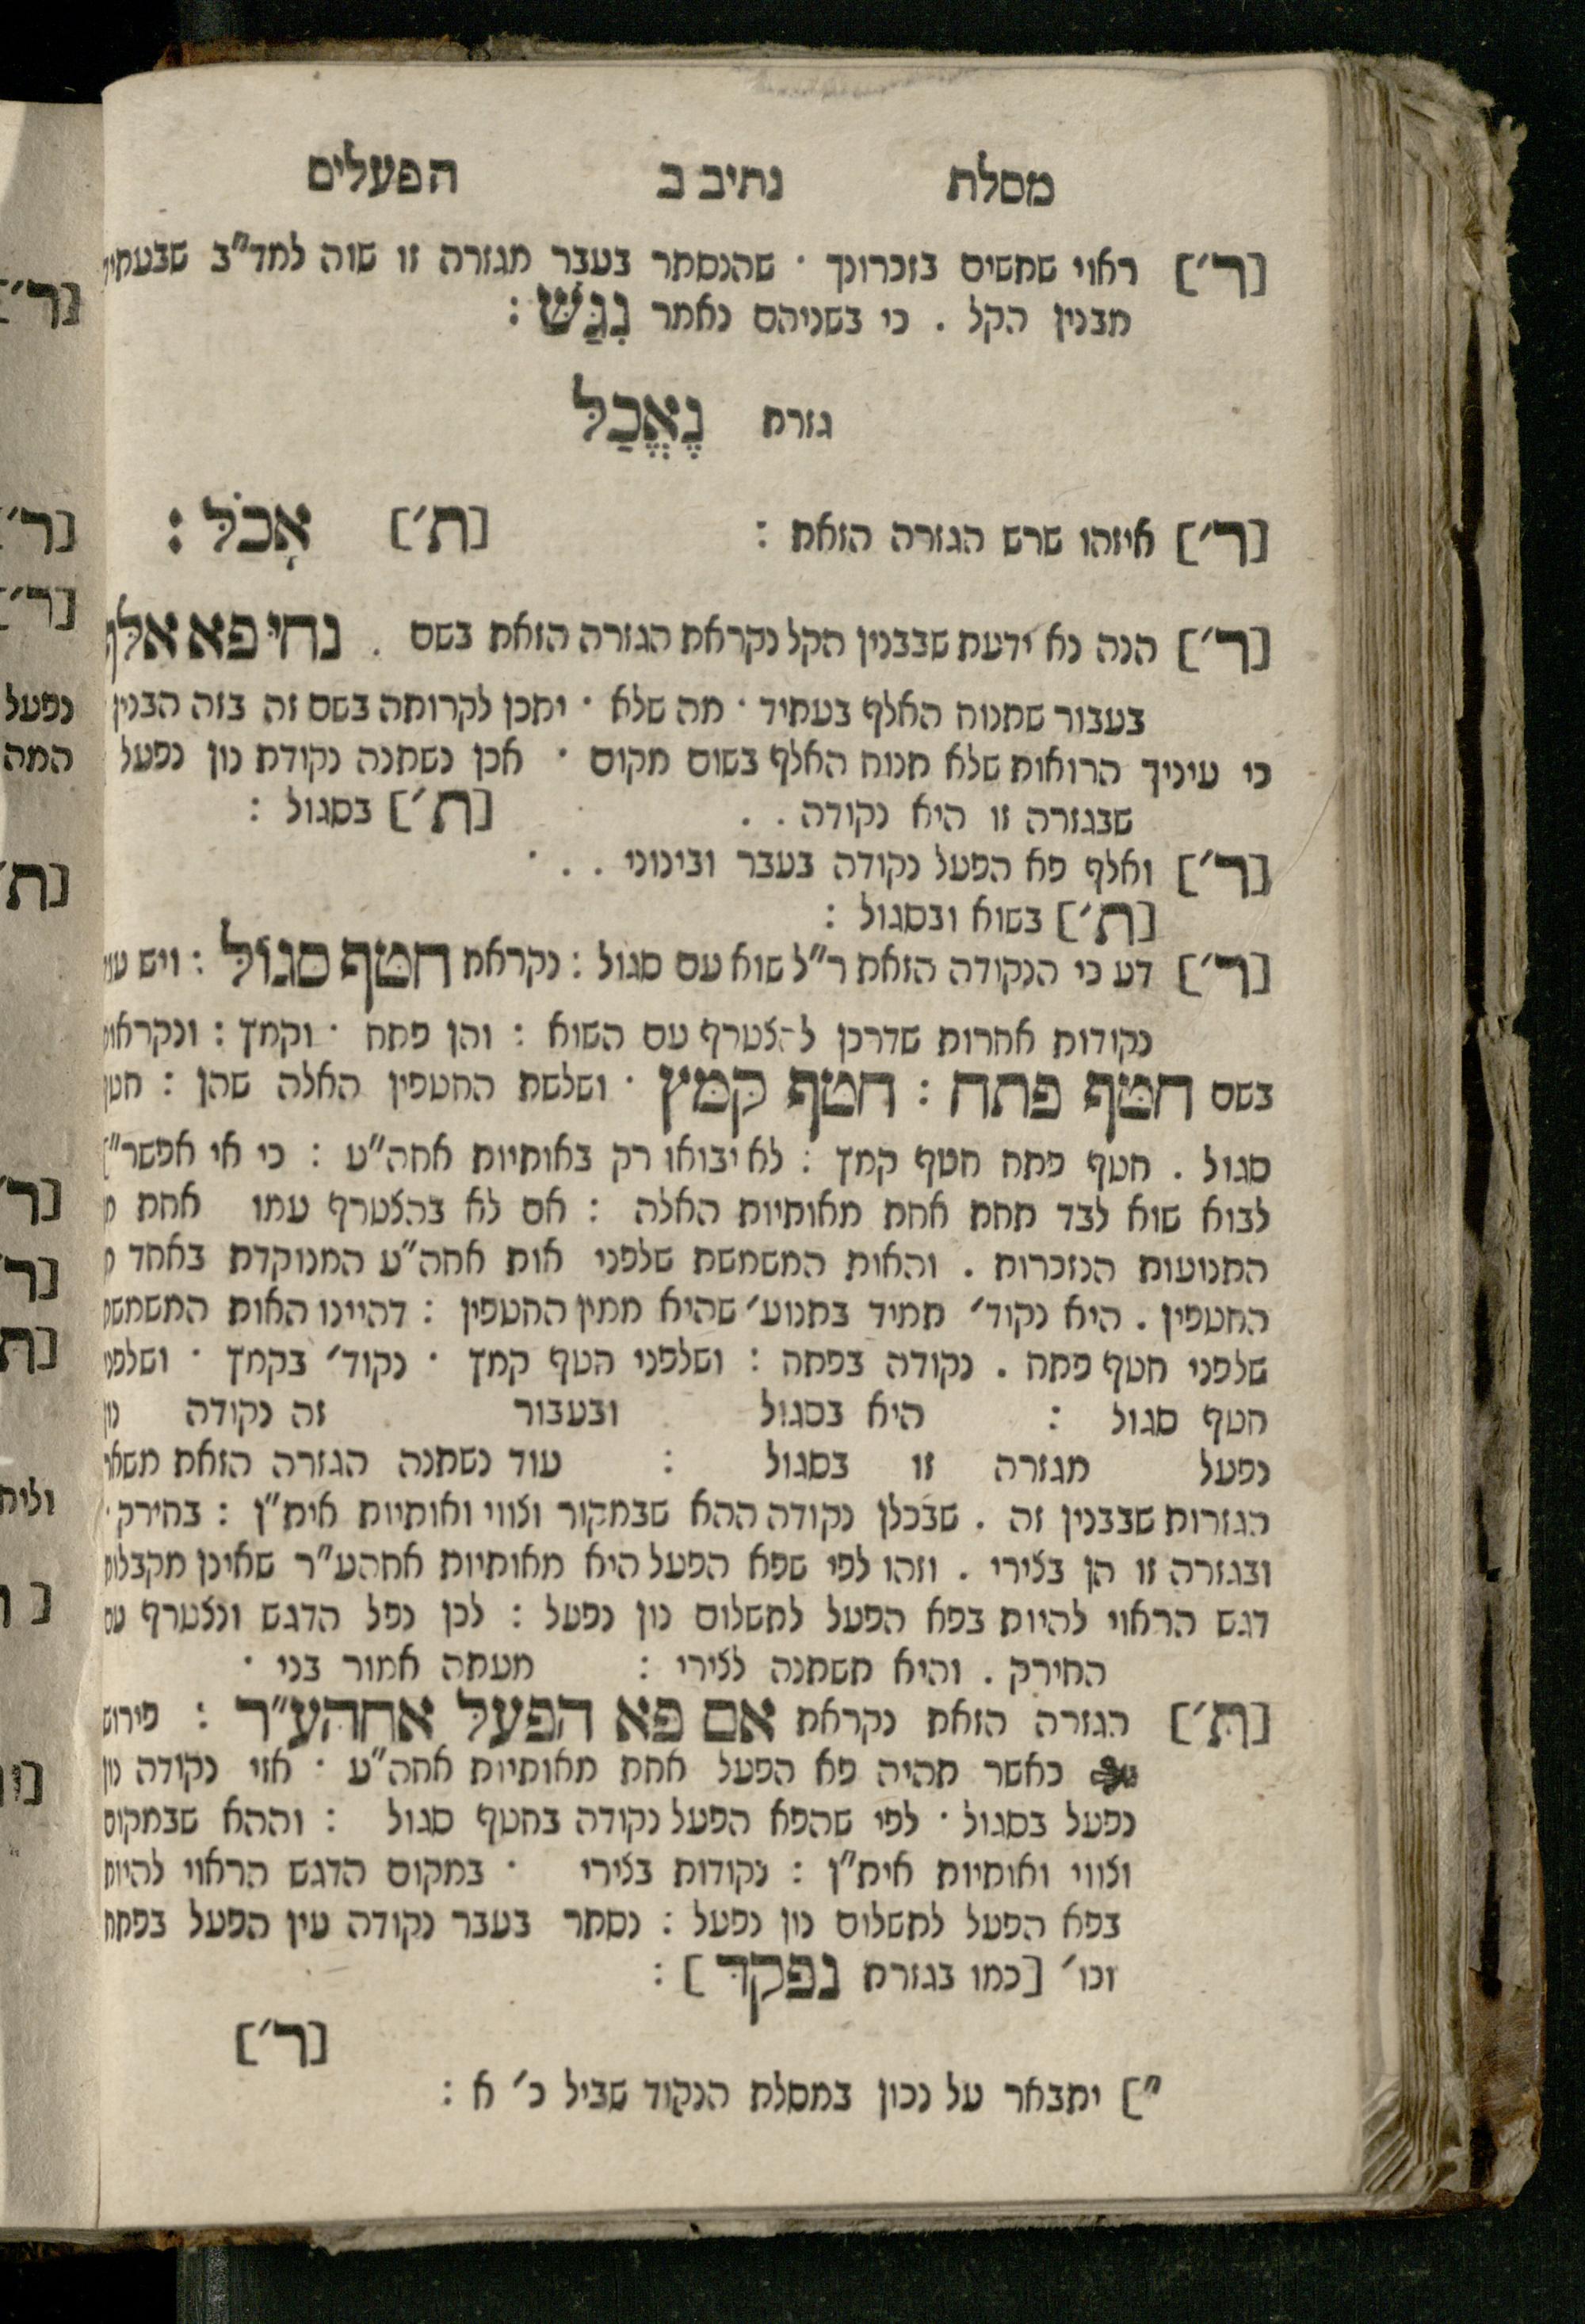 מסלת נתיב ב הפעלים
[ר׳] ראוי שתשים בזכרונך · שהנסתר בעבר מגזרה זו שוה למד״ב שבעתיד
מבנין הקל . כי בשניהם נאמר נִגַּשׁ :
גזרת נֶאֱכַל
[ר׳] איזהו שרש הגזרה הזאת : [ת׳] אָכֹל :
[ר׳] הנה נא ידעת שבבנין הקל נקראת הגזרה הזאת בשם . נחי פא אלף
בעבור שתנוח האלף בעתיד · מה שלא · יתכן לקרותה בשם זה בזה הבנין
כי עיניך הרואות שלא תנוח האלף בשום מקום · אכן נשתנה נקודת נון נפעל
שבגזרה זו היא נקודה . . [ת׳] בסגול :
[ר׳] ואלף פא הפעל נקודה בעבר ובינוני . . ·
[ת׳] בשוא ובסגול :
[ר׳] דע כי הנקודה הזאת ר״ל שוא עם סגול : נקראת חטף סגול : ויש עוד
נקודות אחרות שדרכן להצטרף עם השוא : והן פתח · וקמץ : ונקראות
בשם חטף פתח : חטף קמץ · ושלשת החטפין האלה שהן : חטף
סגול . חטף פתח חטף קמץ : לא יבואו רק באותיות אחה״ע : כי אי אפשר״]
לבוא שוא לבד תחת אחת מאותיות האלה : אם לא בהצטרף עמו אחת מ
התנועות הנזכרות . והאות המשמשת שלפני אות אחה״ע המנוקדת באחד מ
החטפין . היא נקוד׳ תמיד בתנוע׳ שהיא ממין החטפין : דהיינו האות המשמשת
שלפני חטף פתח . נקודה בפתה : ושלפני הטף קמץ · נקוד׳ בקמץ · ושלפני
חטף סגול : היא בסגול ובעבור זה נקודה נון
נפעל מגזרה זו בסגול : עוד נשתנה הגזרה הזאת משאר
הגזרות שבבנין זה . שבכלן נקודה ההא שבמקור וצווי ואותיות אית״ן : בחירק ·
ובגזרה זו הן בצירי . וזהו לפי שפא הפעל היא מאותיות אחהע״ר שאינן מקבלות
דגש הראוי להיות בפא הפעל לתשלום נון נפעל : לכן נפל הדגש ונצטרף עם
החירק . והיא תשתנה לצירי : מעתה אמור בני ·
[ת׳] הגזרה הזאת נקראת אם פא הפעל אחהע״ר : פירוש
כאשר תהיה פא הפעל אחת מאותיות אחה״ע · אזי נקודה נון
נפעל בסגול · לפי שהפא הפעל נקודה בחטף סגול : וההא שבמקום
וצווי ואותיות אית״ן : נקודות בצירי · במקום הדגש הראוי להיות
בפא הפעל לתשלום נון נפעל : נסתר בעבר נקודה עין הפעל בפתח
וכו׳ [כמו בגזרת נפקד] :
[ר׳]
״] יתבאר על נכון במסלת הנקוד שביל כ׳ א :